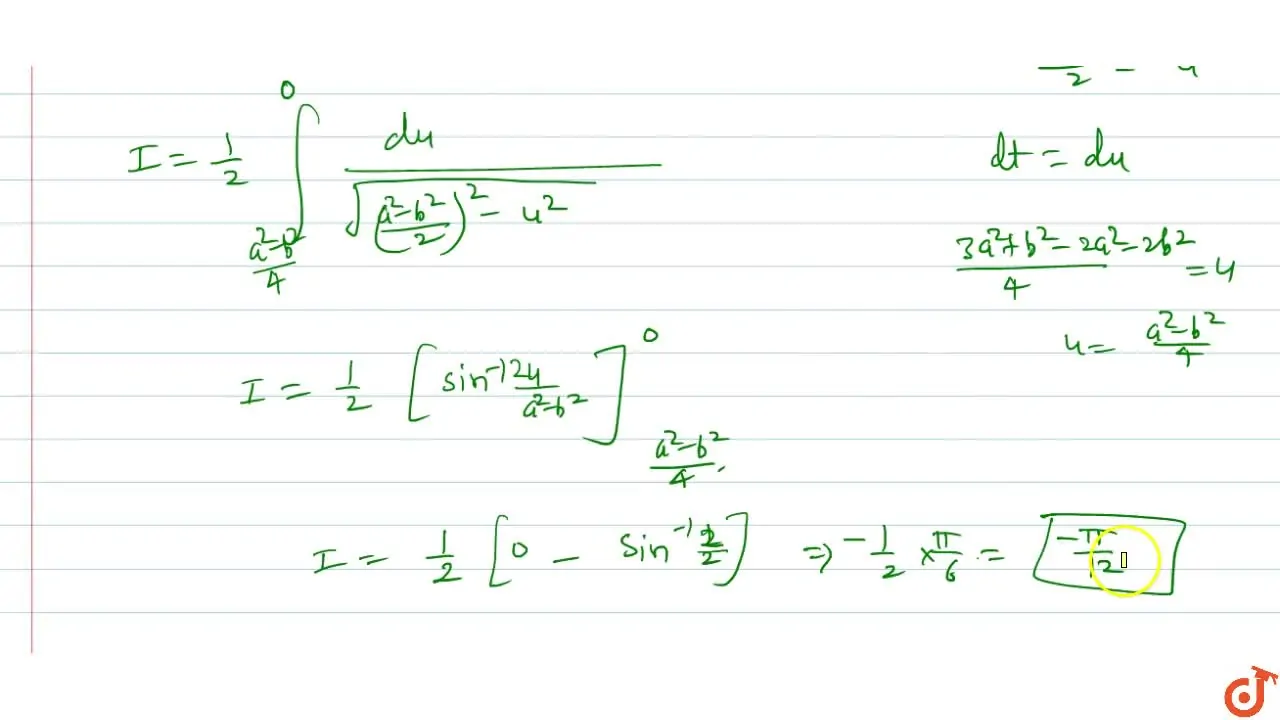 I = 1/2 ∫_{(a²-b²)/4}^{0} du / √(((a²-b²)/2)² - u²)
dt = du
(3a²+b²-2a²-2b²)/4 = u
u = (a²-b²)/4
I = 1/2 [sin⁻¹ 2u/(a²-b²)]_{(a²-b²)/4}^{0}
I = 1/2 [0 - sin⁻¹ 1/2] => -1/2 × π/6 = -π/12